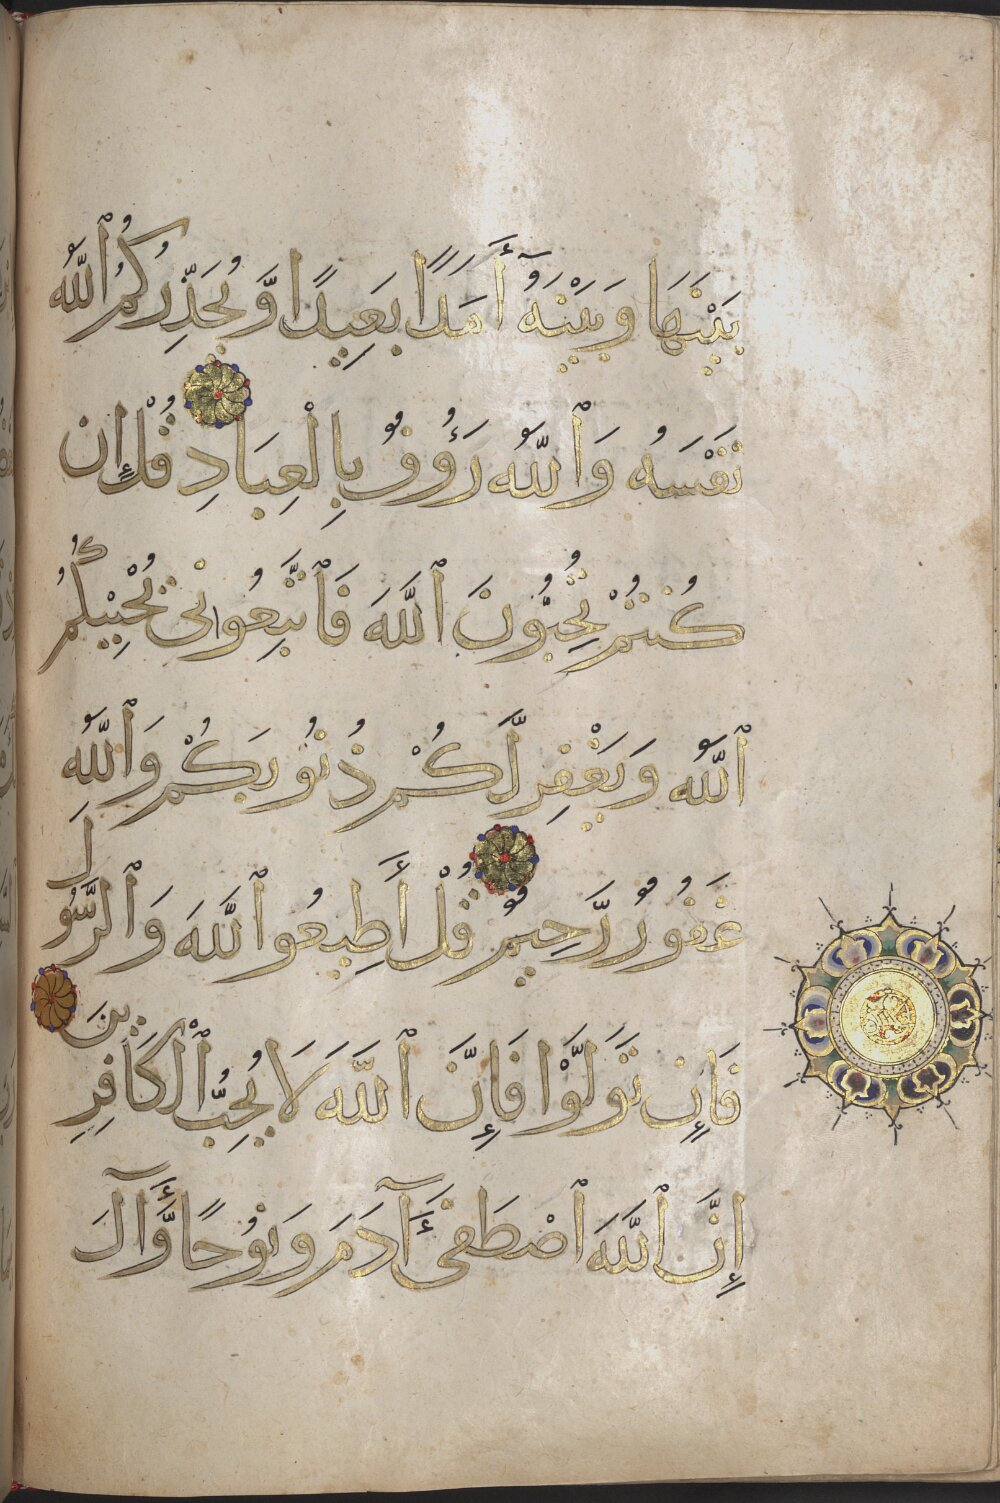 بَيْنَهَا وَبَيْنَهُ أَمَدًا بَعِيدًا وَيُحَذِّرُكُمُ ٱللَّهُ
نَفْسَهُ وَٱللَّهُ رَءُوفٌ بِالْعِبَادِ قُلْ إِن
كُنتُمْ تُحِبُّونَ ٱللَّهَ فَٱتَّبِعُونِى يُحْبِبْكُمُ
ٱللَّهُ وَيَغْفِرْ لَكُمْ ذُنُوبَكُمْ وَٱللَّهُ
غَفُورٌ رَّحِيمٌ قُلْ أَطِيعُوا ٱللَّهَ وَٱلرَّسُولَ
فَإِن تَوَلَّوْا فَإِنَّ ٱللَّهَ لَا يُحِبُّ ٱلْكَافِرِينَ
إِنَّ ٱللَّهَ ٱصْطَفَىٰ آدَمَ وَنُوحًا وَّآلَ